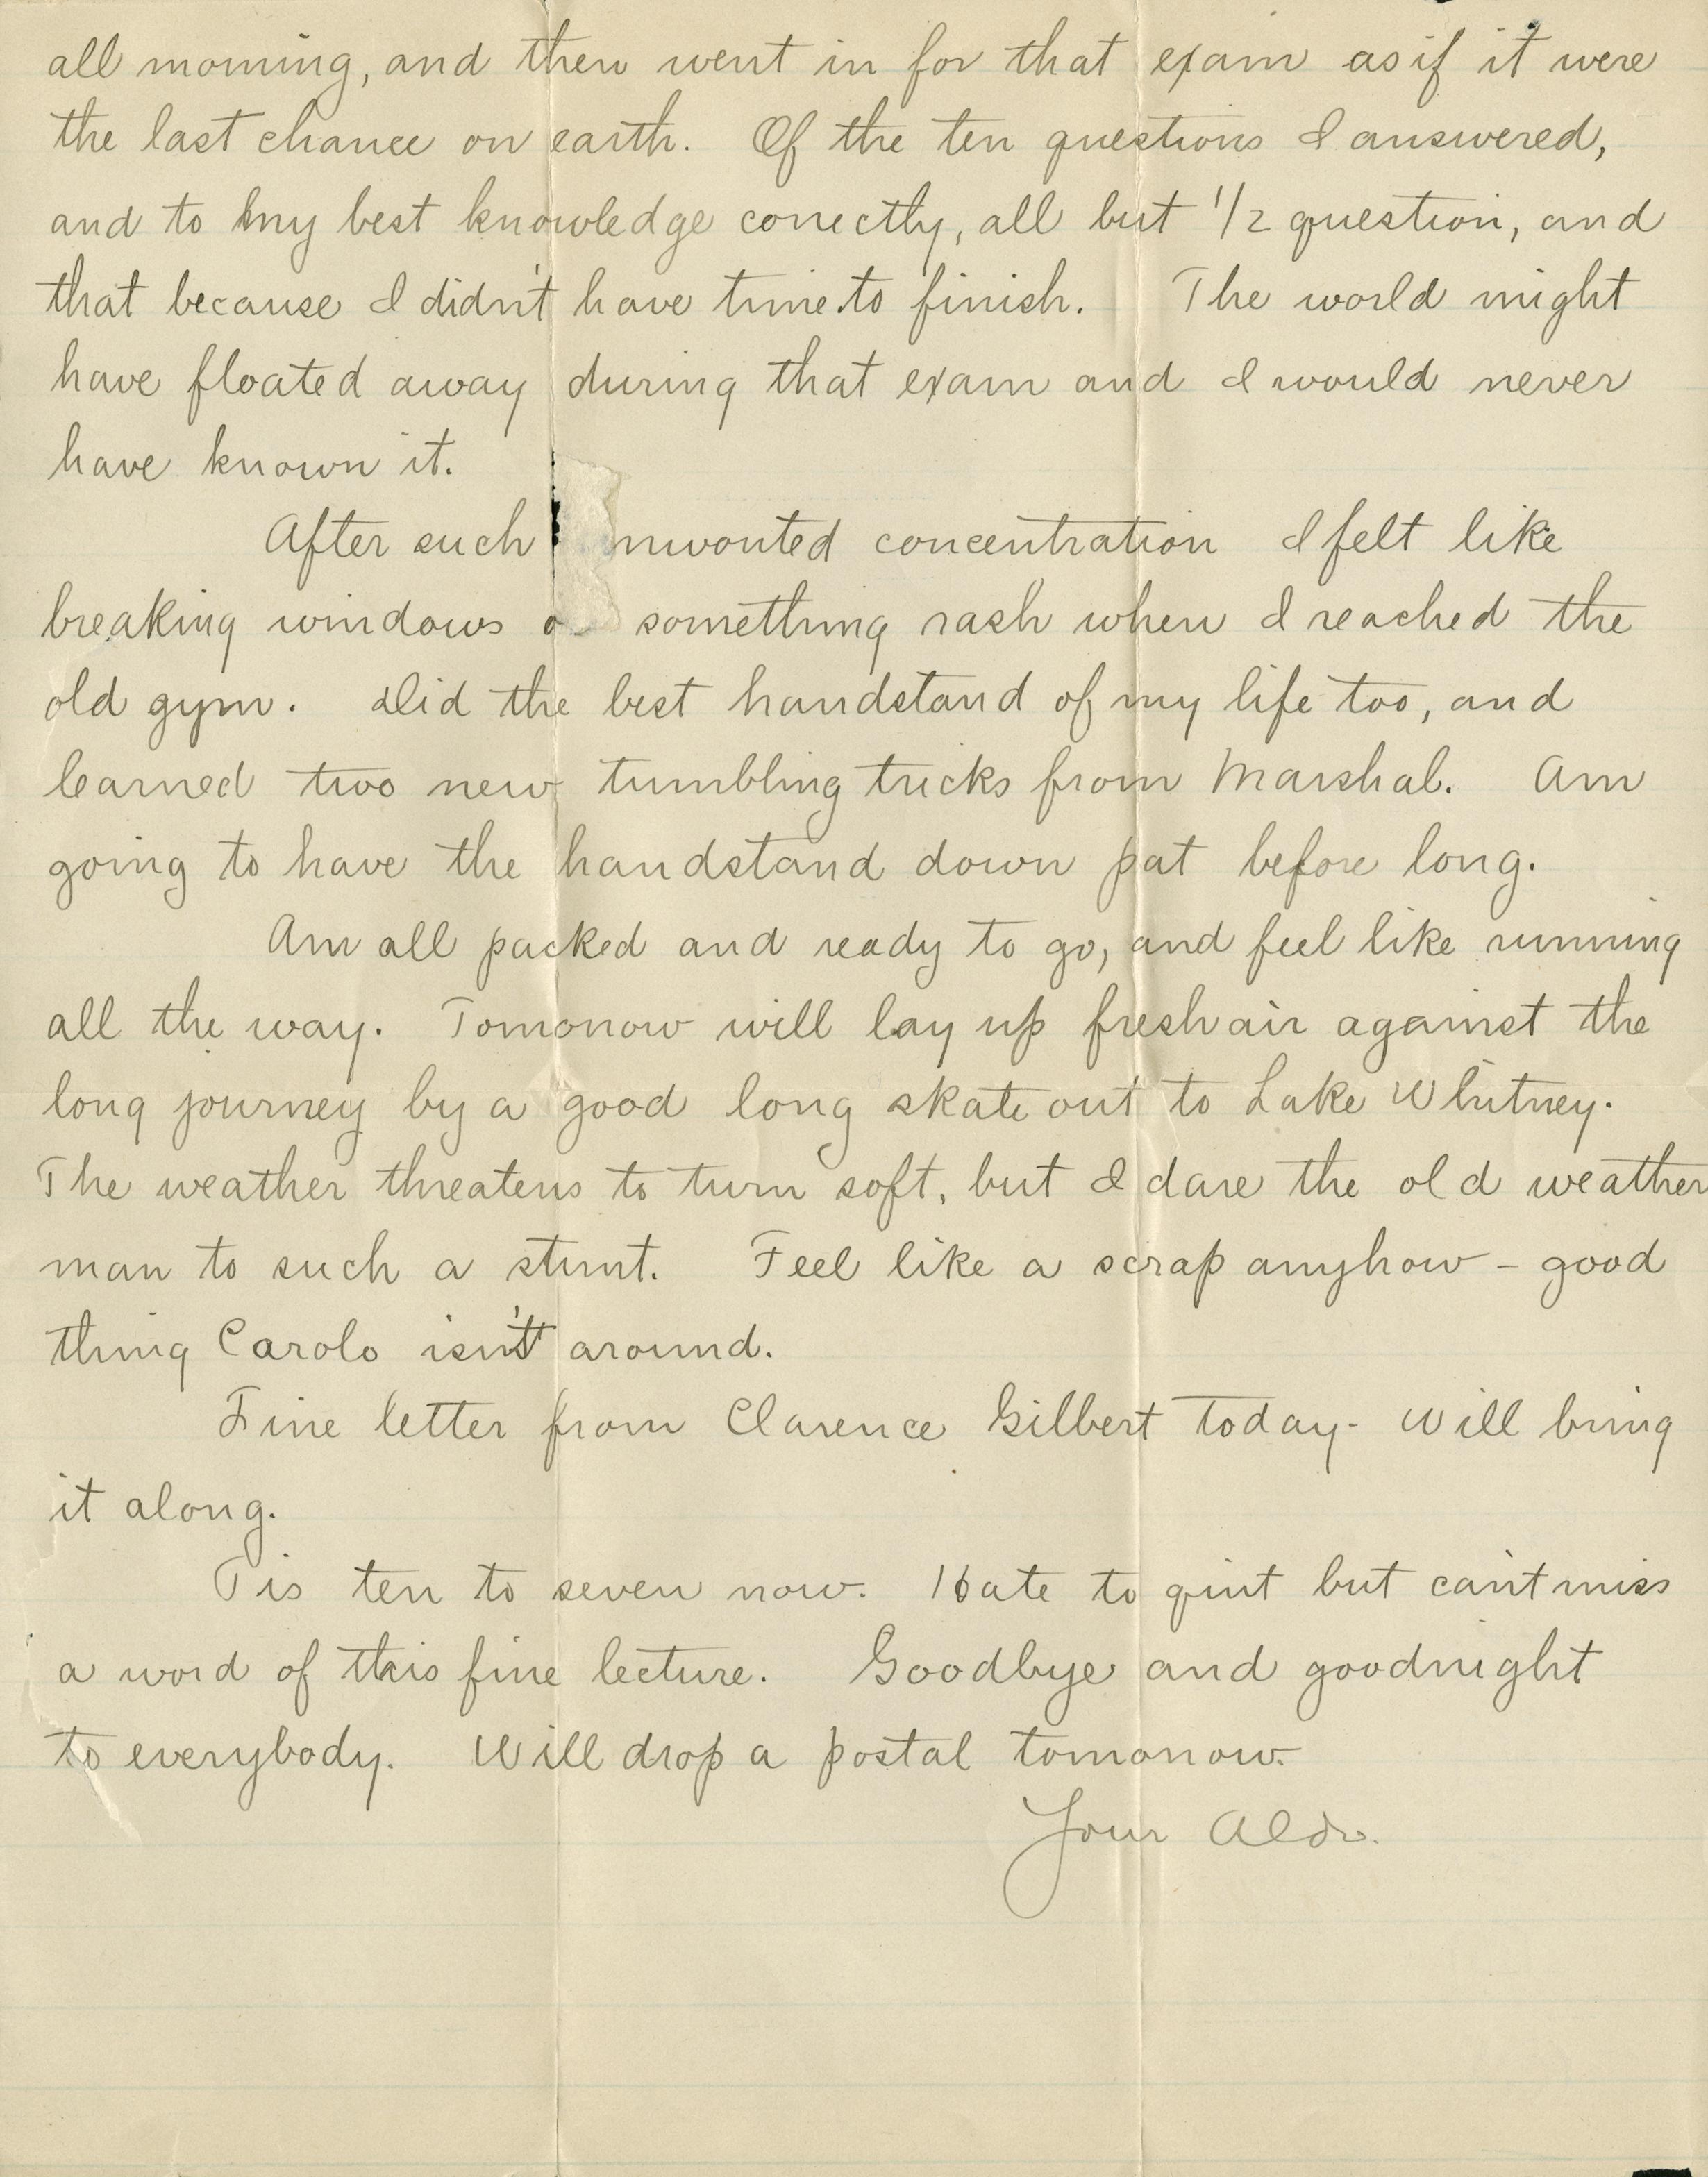 all morning, and then went in for that exam as if it were
the last chance on earth. Of the ten questions I answered,
and to my best knowledge correctly, all but 1/2 question, and
that because I didn't have time to finish. The world might
have floated away during that exam and I would never
have known it.
After such nwonted concentration I felt like
breaking windows o something rash when I reached the
old gym. Did the best handstand of my life too, and
learned two new tumbling tricks from Marshal. Am
going to have the handstand down pat before long.
Am all packed and ready to go, and feel like running
all the way. Tomorrow will lay up fresh air against the
long journey by a good long skate out to Lake Whitney.
The weather threatens to turn soft, but I dare the old weather
man to such a stunt. Feel like a scrap anyhow - good
thing Carolo isn't around.
Fine letter from Clarence Gilbert today - Will bring
it along.
Tis ten to seven now. Hate to quit but can't miss
a word of this fine lecture. Goodbye and goodnight
to everybody. Will drop a postal tomorrow.
Your Aldo.